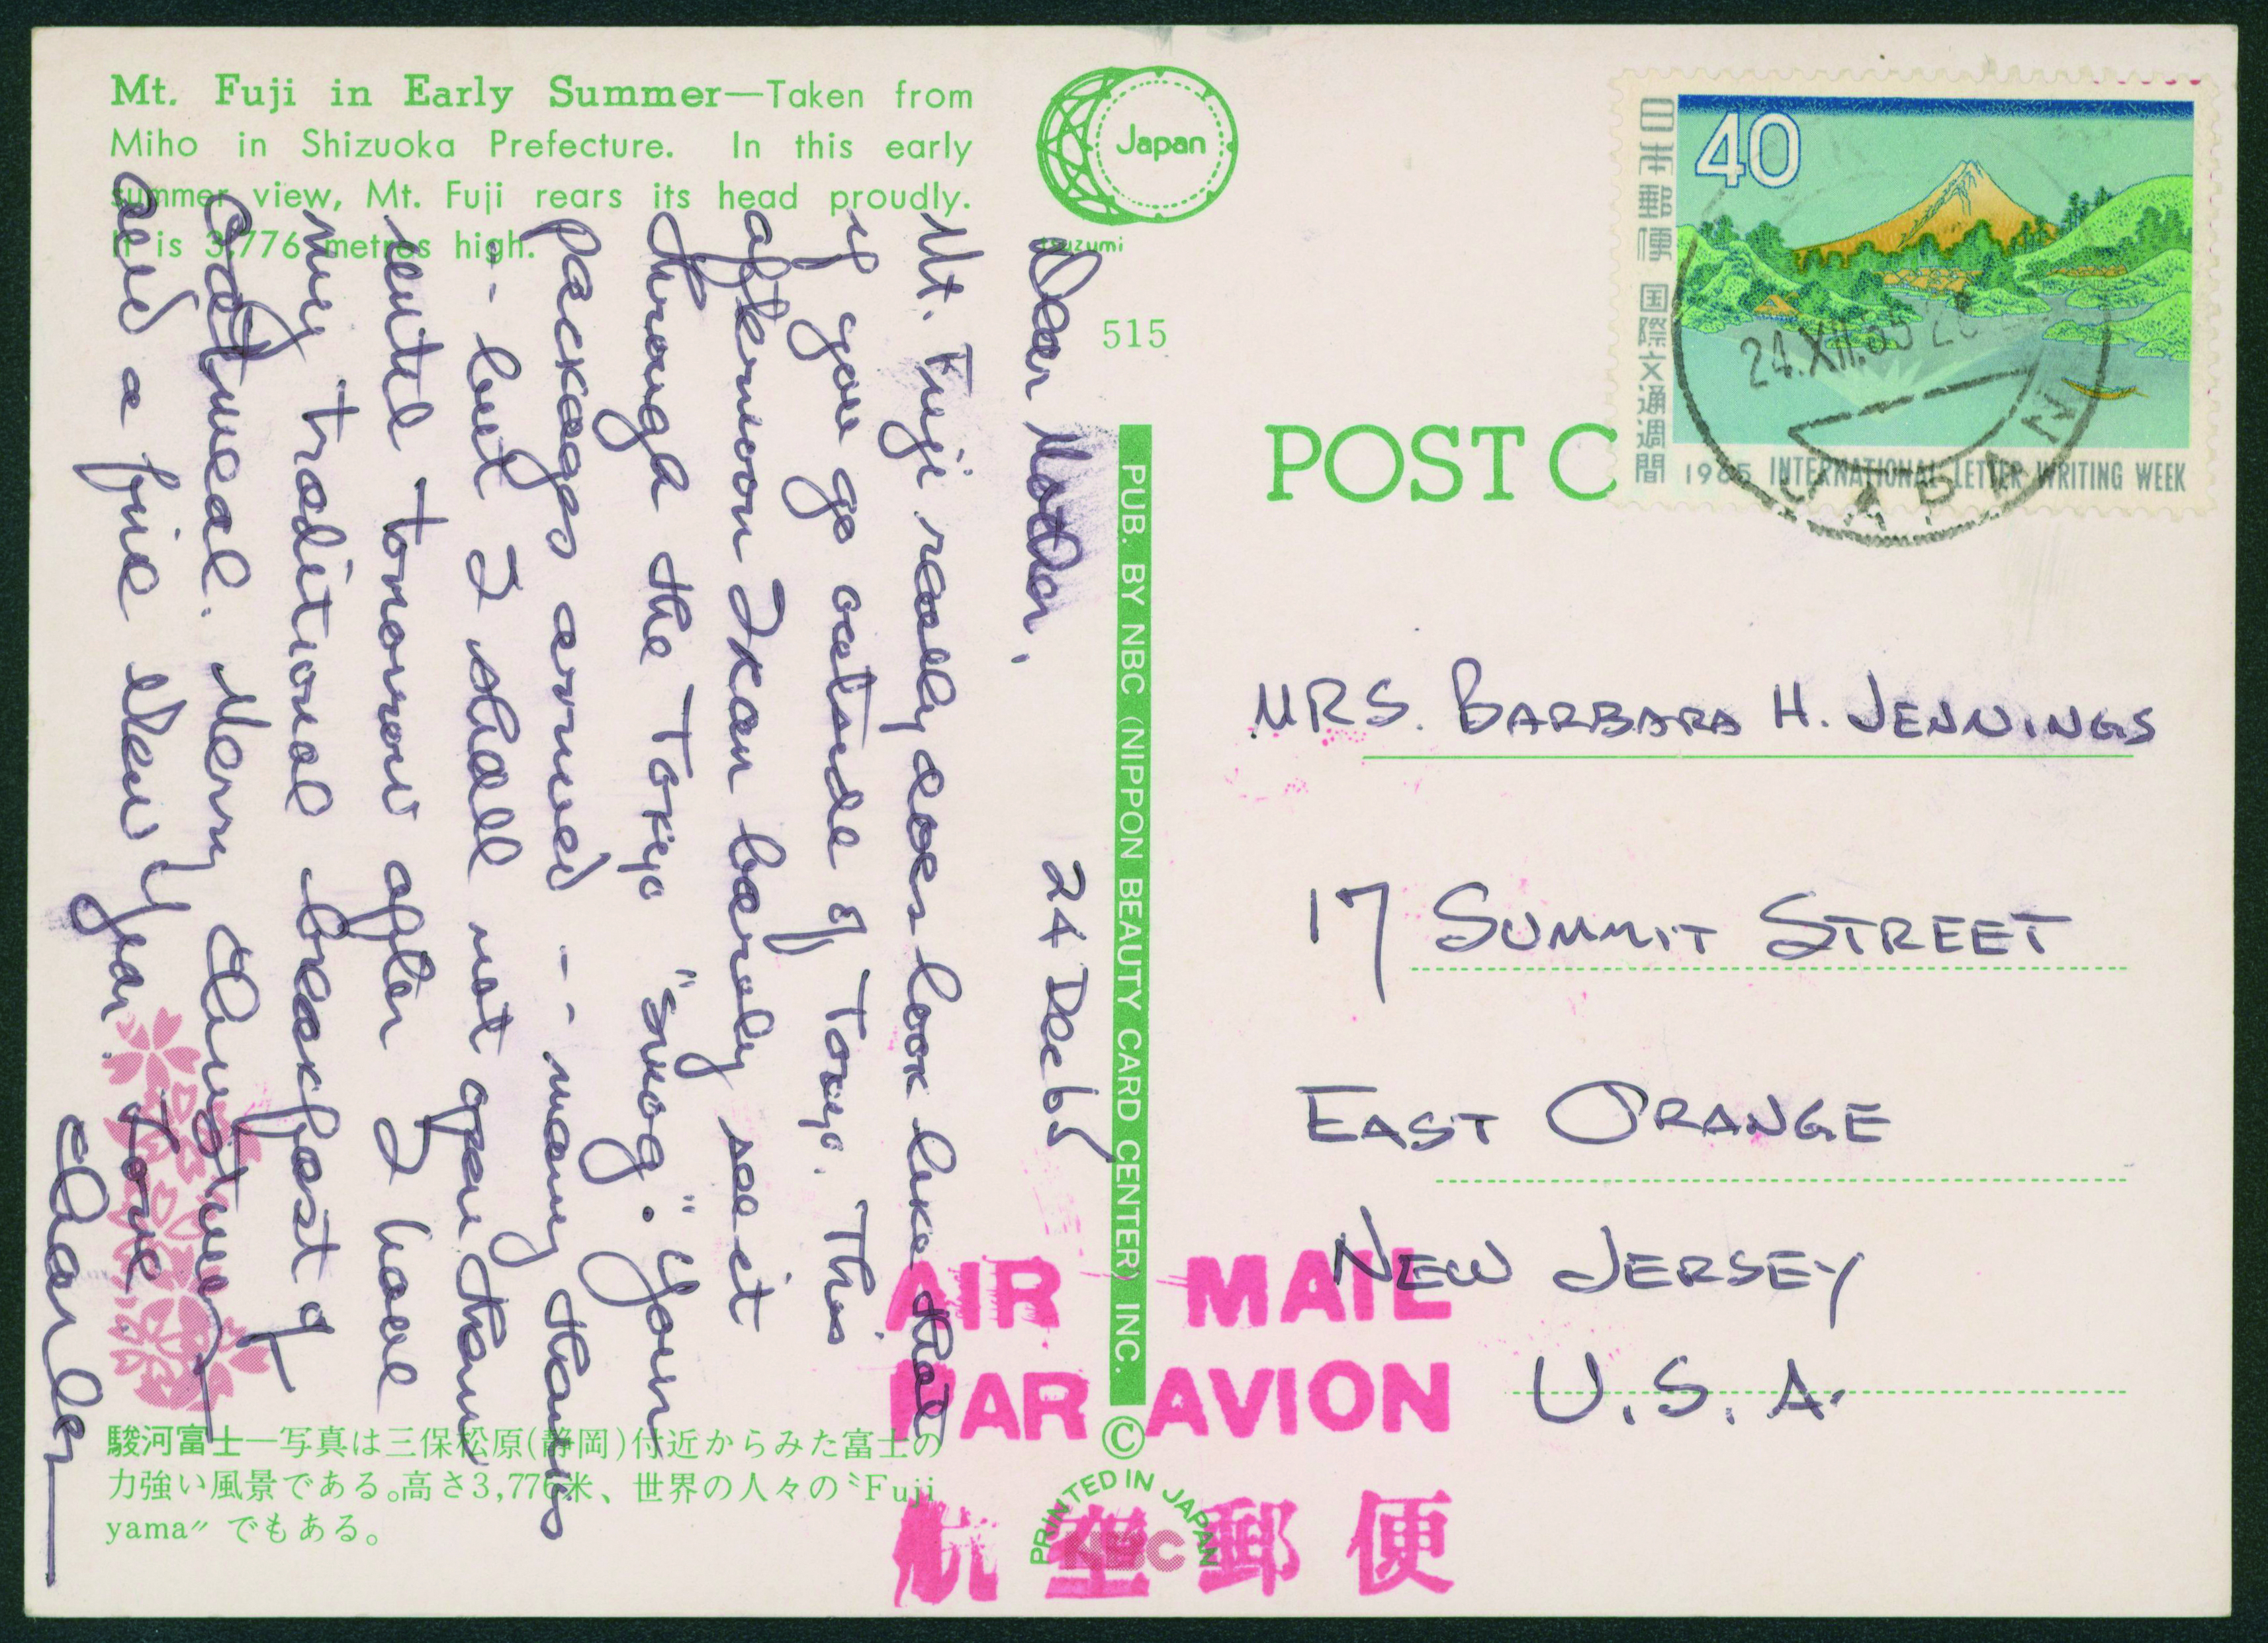 Mt. Fuji in Early Summer—Taken from
Miho in Shizuoka Prefecture. In this early
summer view, Mt. Fuji rears its head proudly.
It is 3,776 metres high.
Japan
tsuzumi
515
Dear Mother, 24 Dec 65
Mt. Fuji really does look like that
if you go outside of Tokyo. This
afternoon I can barely see it
through the Tokyo "smog." Your
packages arrived -- many thanks
-- but I shall not open them
until tomorrow after I have
my traditional breakfast of
oatmeal. Merry Christmas
and a fine New Year.
Love
Charley
駿河富士—写真は三保松原(静岡)付近からみた富士の
力強い風景である。高さ3,776米、世界の人々の〝Fuji
yama〟でもある。
PUB. BY NBC (NIPPON BEAUTY CARD CENTER) INC.
©
PRINTED IN JAPAN
NBC
POST C
日本郵便 国際文通週間
40
1965 INTERNATIONAL LETTER WRITING WEEK
24.XII.65
JAPAN
MRS. BARBARA H. JENNINGS
17 SUMMIT STREET
EAST ORANGE
NEW JERSEY
U.S.A.
AIR MAIL
PAR AVION
航空郵便